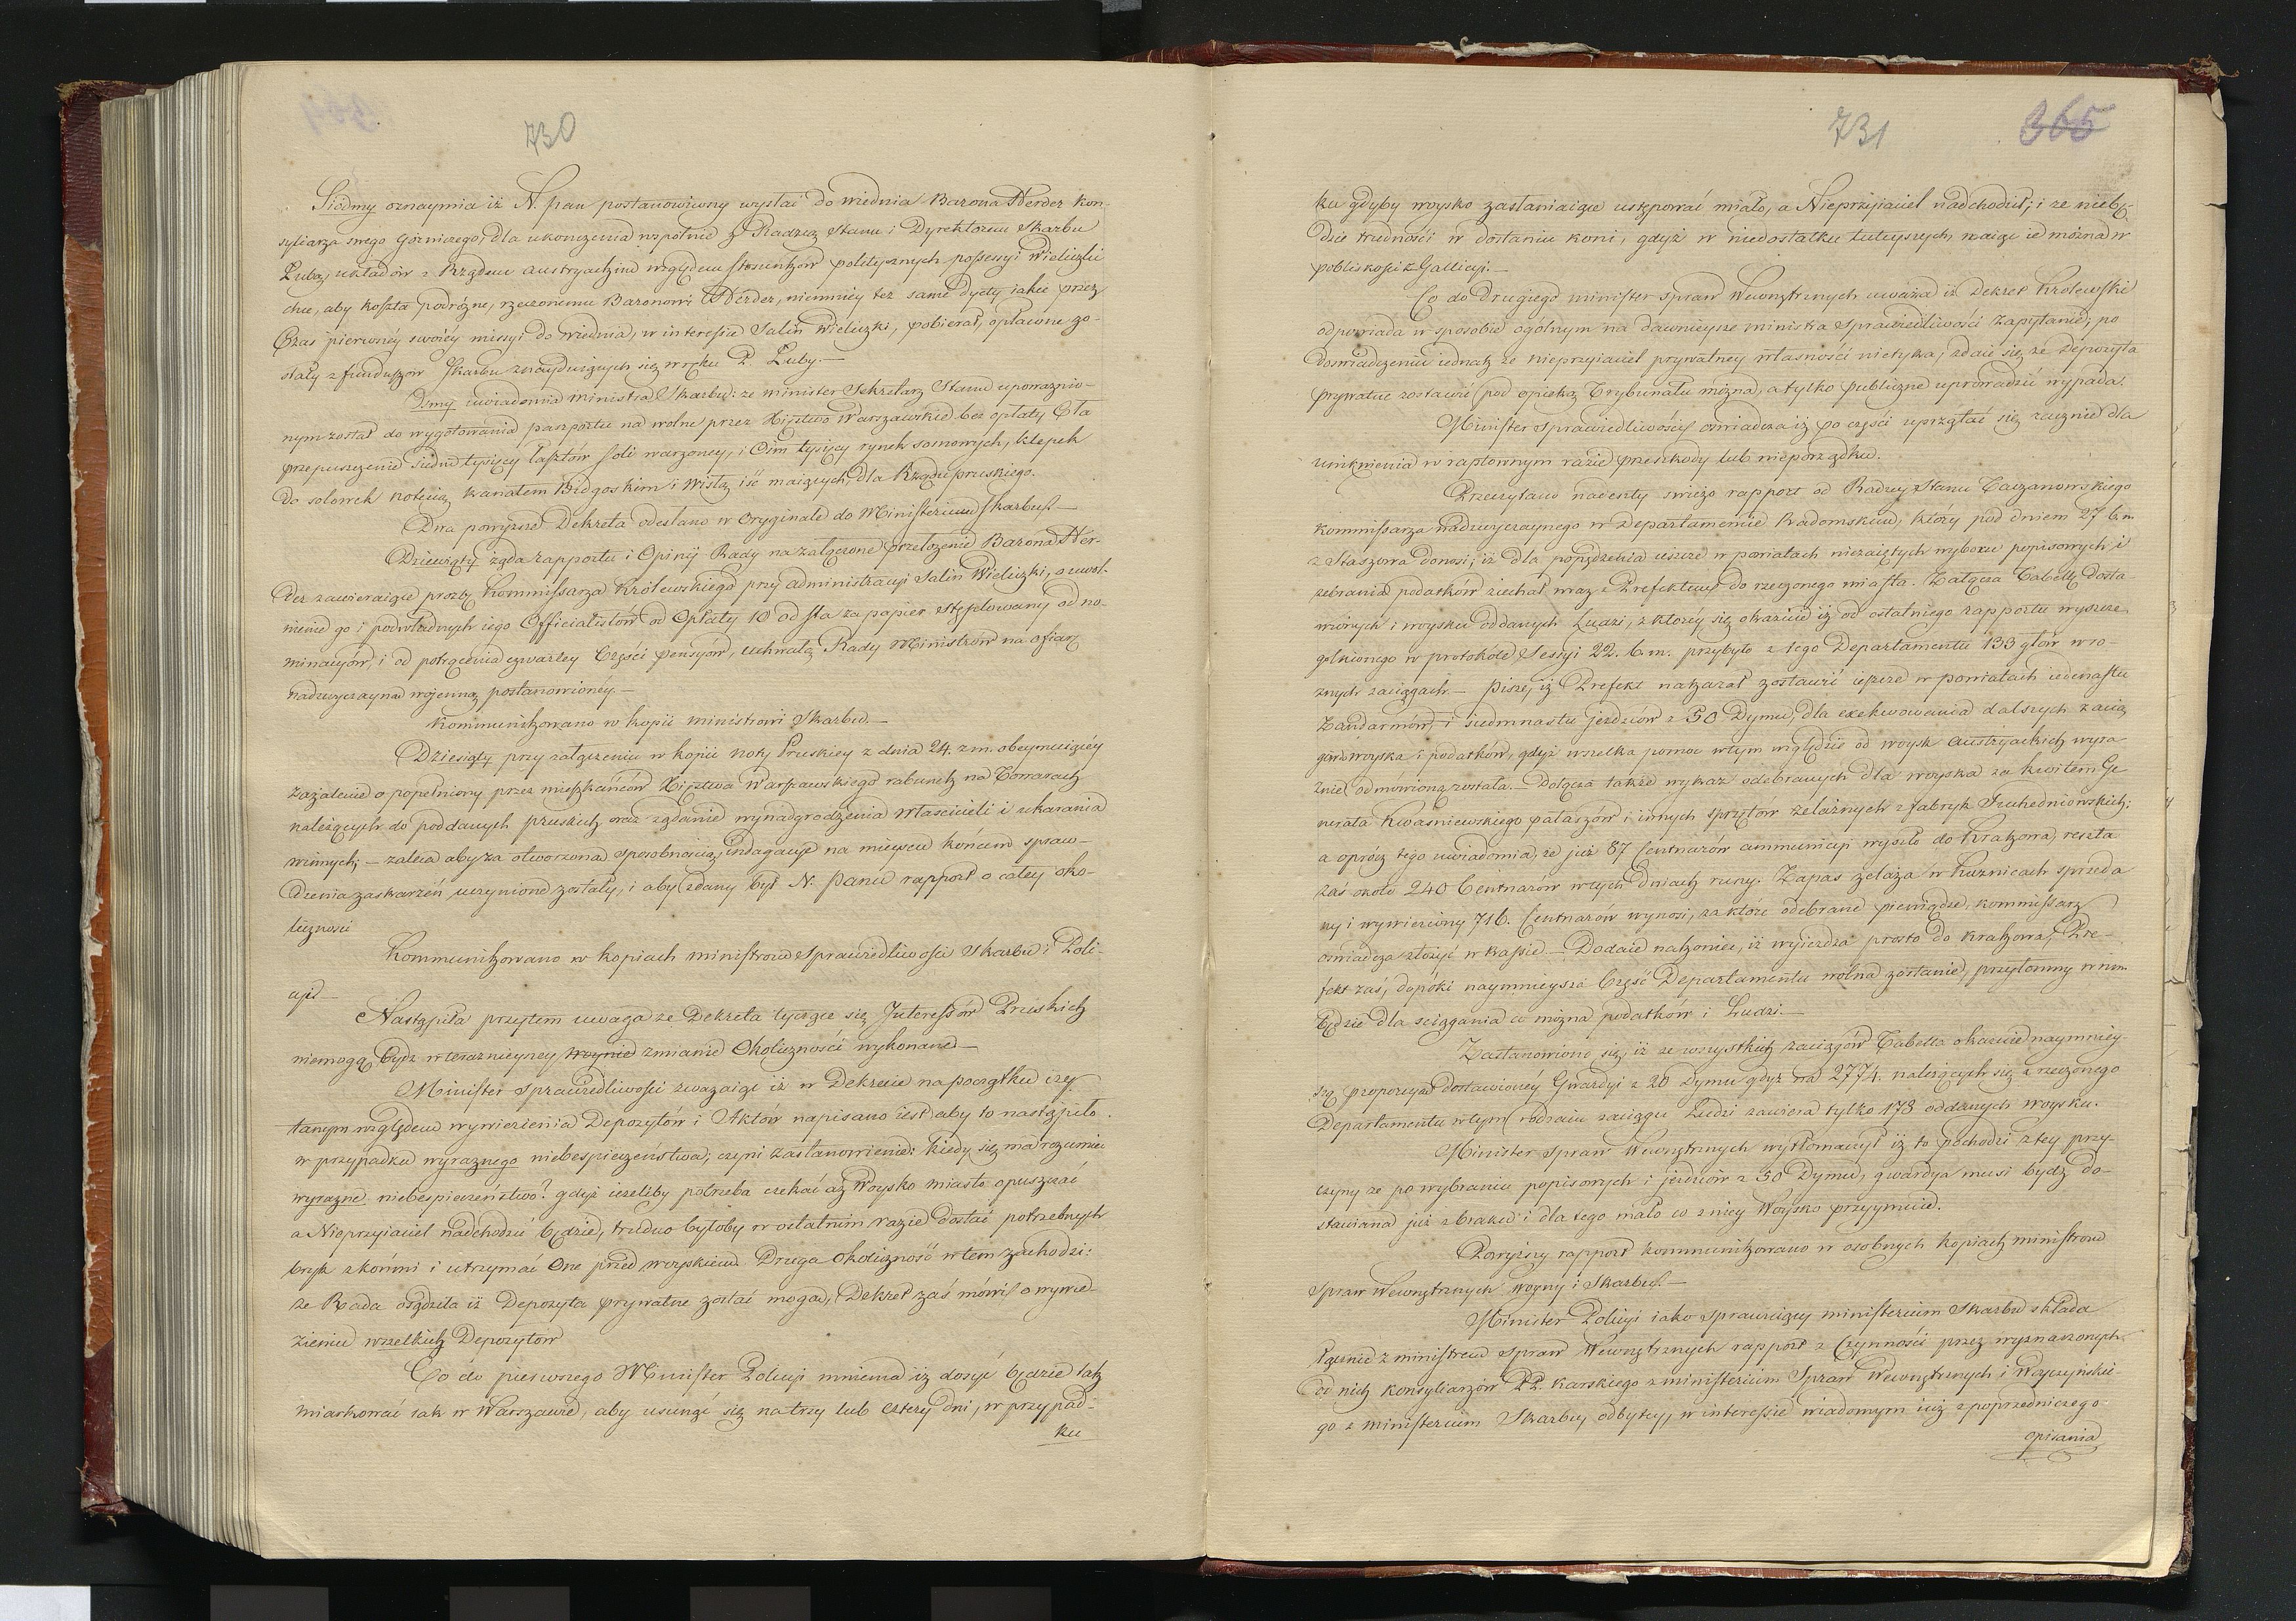 730
Siódmy oznaymia iż N. Pan postanowiwszy wysłać do Wiednia Barona Herder kon-
syliarza swego Górniczego, dla ukończenia wspólnie z Radzcą Stanu i Dyrektorem Skarbu
Łubą, układów z Rządem austryackim względem stosunków politycznych possessyi Wielicz-
chce, aby koszta podróżne, rzeczonemu Baronowi Herder, niemniey też same dyety, iakie przez
Czas pierwszéy swoiéy missyi do Wiednia, w interessie Salin Wieliczki, pobierał, opłacone zo-
stały z funduszów Skarbu znayduiących się w ręku P. Łuby.—
Osmy uwiadomia Ministra Skarbu: że minister Sekretarz Stanu upoważnio-
nym został do wygotowania paszportu na wolne przez Xięstwo Warszawskie bez opłaty Cła
przepuszczenie siedm tysięcy łasztów soli warzoney, i Ośm tysięcy rynek sosnowych, klepek
do solówek Notecią kanałem Bidgoskim i Wisłą iść maiących, dla Rządu pruskiego.
Dwa powyższe Dekreta odesłano w Oryginale do Ministerium Skarbu.—
Dziewiąty żąda rapportu i Opinij Rady na załączone przełożenie Barona Her-
der zawieraiące prozbę Kommissarza Królewskiego przy administracyi Salin Wieliczki, o uwol-
nienie go i podwładnych iego Officialistów od Opłaty 10 od sta za papier stęplowany od no-
minacyów, i od potrącenia czwartey Części pensyów, uchwałą Rady Ministrów na ofiarę
nadzwyczayną wojenną postanowionéy.—
Kommunikowano w kopii ministrowi Skarbu.—
Dziesiąty przy załączeniu w kopii noty Pruskiey z dnia 24. z. m. obeymuiącéy
zażalenie o popełniony przez mieszkańców Xięstwa Warszawskiego rabunek na Towarach
należących do poddanych pruskich oraz żądanie wynadgrodzenia Właścicieli i ukarania
winnych;— zaleca aby za otworzoną sposobnością, indagacye na mieyscu końcem spraw-
dzenia zaskarżeń uczynione zostały, i aby zdany był N. Panu rapport o całey oko-
liczności
Kommunikowano w kopiach ministrom Sprawiedliwości Skarbu i Poli-
cyi—
Nastąpiła przytem uwaga że Dekreta tyczące się Interessów Pruskich
niemogą bydź w teraznieyszey woynie zmianie Okoliczności wykonane—
Minister Sprawiedliwości zważaiąc iż w Dekrecie na początku czy-
tanym względem wywiezienia Depozytów i Aktów napisano iest aby to nastąpiło
w przypadku wyraznego niebespieczeństwa; czyni zastanowienie: kiedy się ma rozumieć
wyrazne niebespieczeństwo? gdyż ieżeliby potrzeba czekać aż Woysko miasto opuszczać
a Nieprzyiaciel nadchodzić będzie, trudno byłoby w ostatnim razie dostać potrzebnych
bryk z końmi i utrzymać One przed woyskiem. Druga Okoliczność w tem zachodzi:
że Rada osądziła iż Depozyta prywatne zostać mogą, Dekret zaś mówił o wywie-
zieniu wszelkich Depozytów
Co do pierwszego Minister Policyi mniema iż dosyć będzie tak
miarkować iak w Warszawie, aby usunąć się na trzy lub cztery dni, w przypad-
ku
731
365
ku gdyby woysko zasłaniaiące ustępować miało, a Nieprzyiaciel nadchodził; i że niebę-
dzie trudności w dostaniu koni, gdyż w niedostatku tuteyszych, naiąć ie można w
pobliskości z Gallicyi.—
Co do Drugiego minister spraw Wewnętrznych uważa iż Dekret Królewski
odpowiada w sposobie ogólnym na dawnieysze ministra Sprawiedliwości zapytanie; po
Doświadczeniu iednak że nieprzyiaciel prywatney własności nietyka; zdaie się że Depozyta
prywatne zostawić pod opieką Trybunału można, a tylko publiczne uprowadzić wypada.
Minister Sprawiedliwości oświadcza iż po części uprzątać się zacznie dla
uniknienia w raptownym razie przeszkody lub nieporządku.
Przeczytano nadeszły świeżo rapport od Radzcy Stanu Taczanowskiego
Kommissarza nadzwyczaynego w Departamencie Radomskim, który pod dniem 27 b. m.
z Staszowa donosi, iż dla popędzenia ieszcze w powiatach niezaiętych wyboru popisowych i
zebrania podatków ziechał wraz z Prefektem do rzeczonego miasta. Załącza Tabellę dosta-
wionych i woysku oddanych Ludzi, z którey się okazuie iż od ostatniego rapportu wyszcze-
gólnionego w protokóle Sessyi 22. b. m. przybyło z tego Departamentu 133 głów w ro-
żnych zaciągach.— Pisze, iż Prefekt nakazał zostawić ieszcze w powiatach iedenastu
Żandarmów, i siedmnastu jezdzców z 50 Dymu, dla exekwowania dalszych zacią-
gów woyska i podatków, gdyż wszelka pomoc w tym względzie od woysk austryackich wyra-
znie odmówioną została.— Dołącza także wykaz odebranych dla woyska za kwitem Ge-
nerała Kwaśniewskiego pałaszów i innych sprzętów żelaznych z fabryk Suchedniowskich;
a oprócz tego uwiadomia, że już 87 Centnarów ammunicyi wyszło do Krakowa, reszta
zaś około 240 Centnarów w tych dniach ruszy. Zapas żelaza w Kuznicach sprzeda-
ny i wywieziony 716. Centnarów wynosi, za które odebrane pieniądze, kommissarz
oświadcza złożyć w kassie.— Dodaie nakoniec, iż wyjezdza prosto do Krakowa, Pre-
fekt zaś, dopóki naymnieysza Część Departamentu wolną zostanie, przytomny w nim
będzie dla ściągania co można podatków i Ludzi.—
Zastanowiono się, iż ze wszystkich zaciągów Tabella okazuie naymniey-
szą proporcyą dostawionéy Gwardyi z 20 Dymu gdyż na 2774. należących się z rzeczonego
Departamentu w tym rodzaiu zaciągu Ludzi zawiera tylko 173 oddanych woysku.
Minister Spraw Wewnętrznych wytłomaczył iż to pochodzi z tey przy-
czyny że po wybraniu popisowych i jezdzców z 50 Dymu, gwardya musi bydz do-
stawiana już z braku i dla tego mało co z niey Woysko przyymuie.
Powyższy rapport kommunikowano w osobnych kopiach ministrom
Spraw Wewnętrznych Woyny i Skarbu.—
Minister Policyi iako sprawuiący ministerium Skarbu składa
łącznie z ministrem spraw Wewnętrznych rapport z Czynności przez wyznaczonych
od nich konsyliarzów PP. Karskiego z ministerium Spraw Wewnętrznych i Woyczyńskie-
go z ministerium Skarbu, odbytey, w interessie wiadomym już z poprzedniczego
opisania